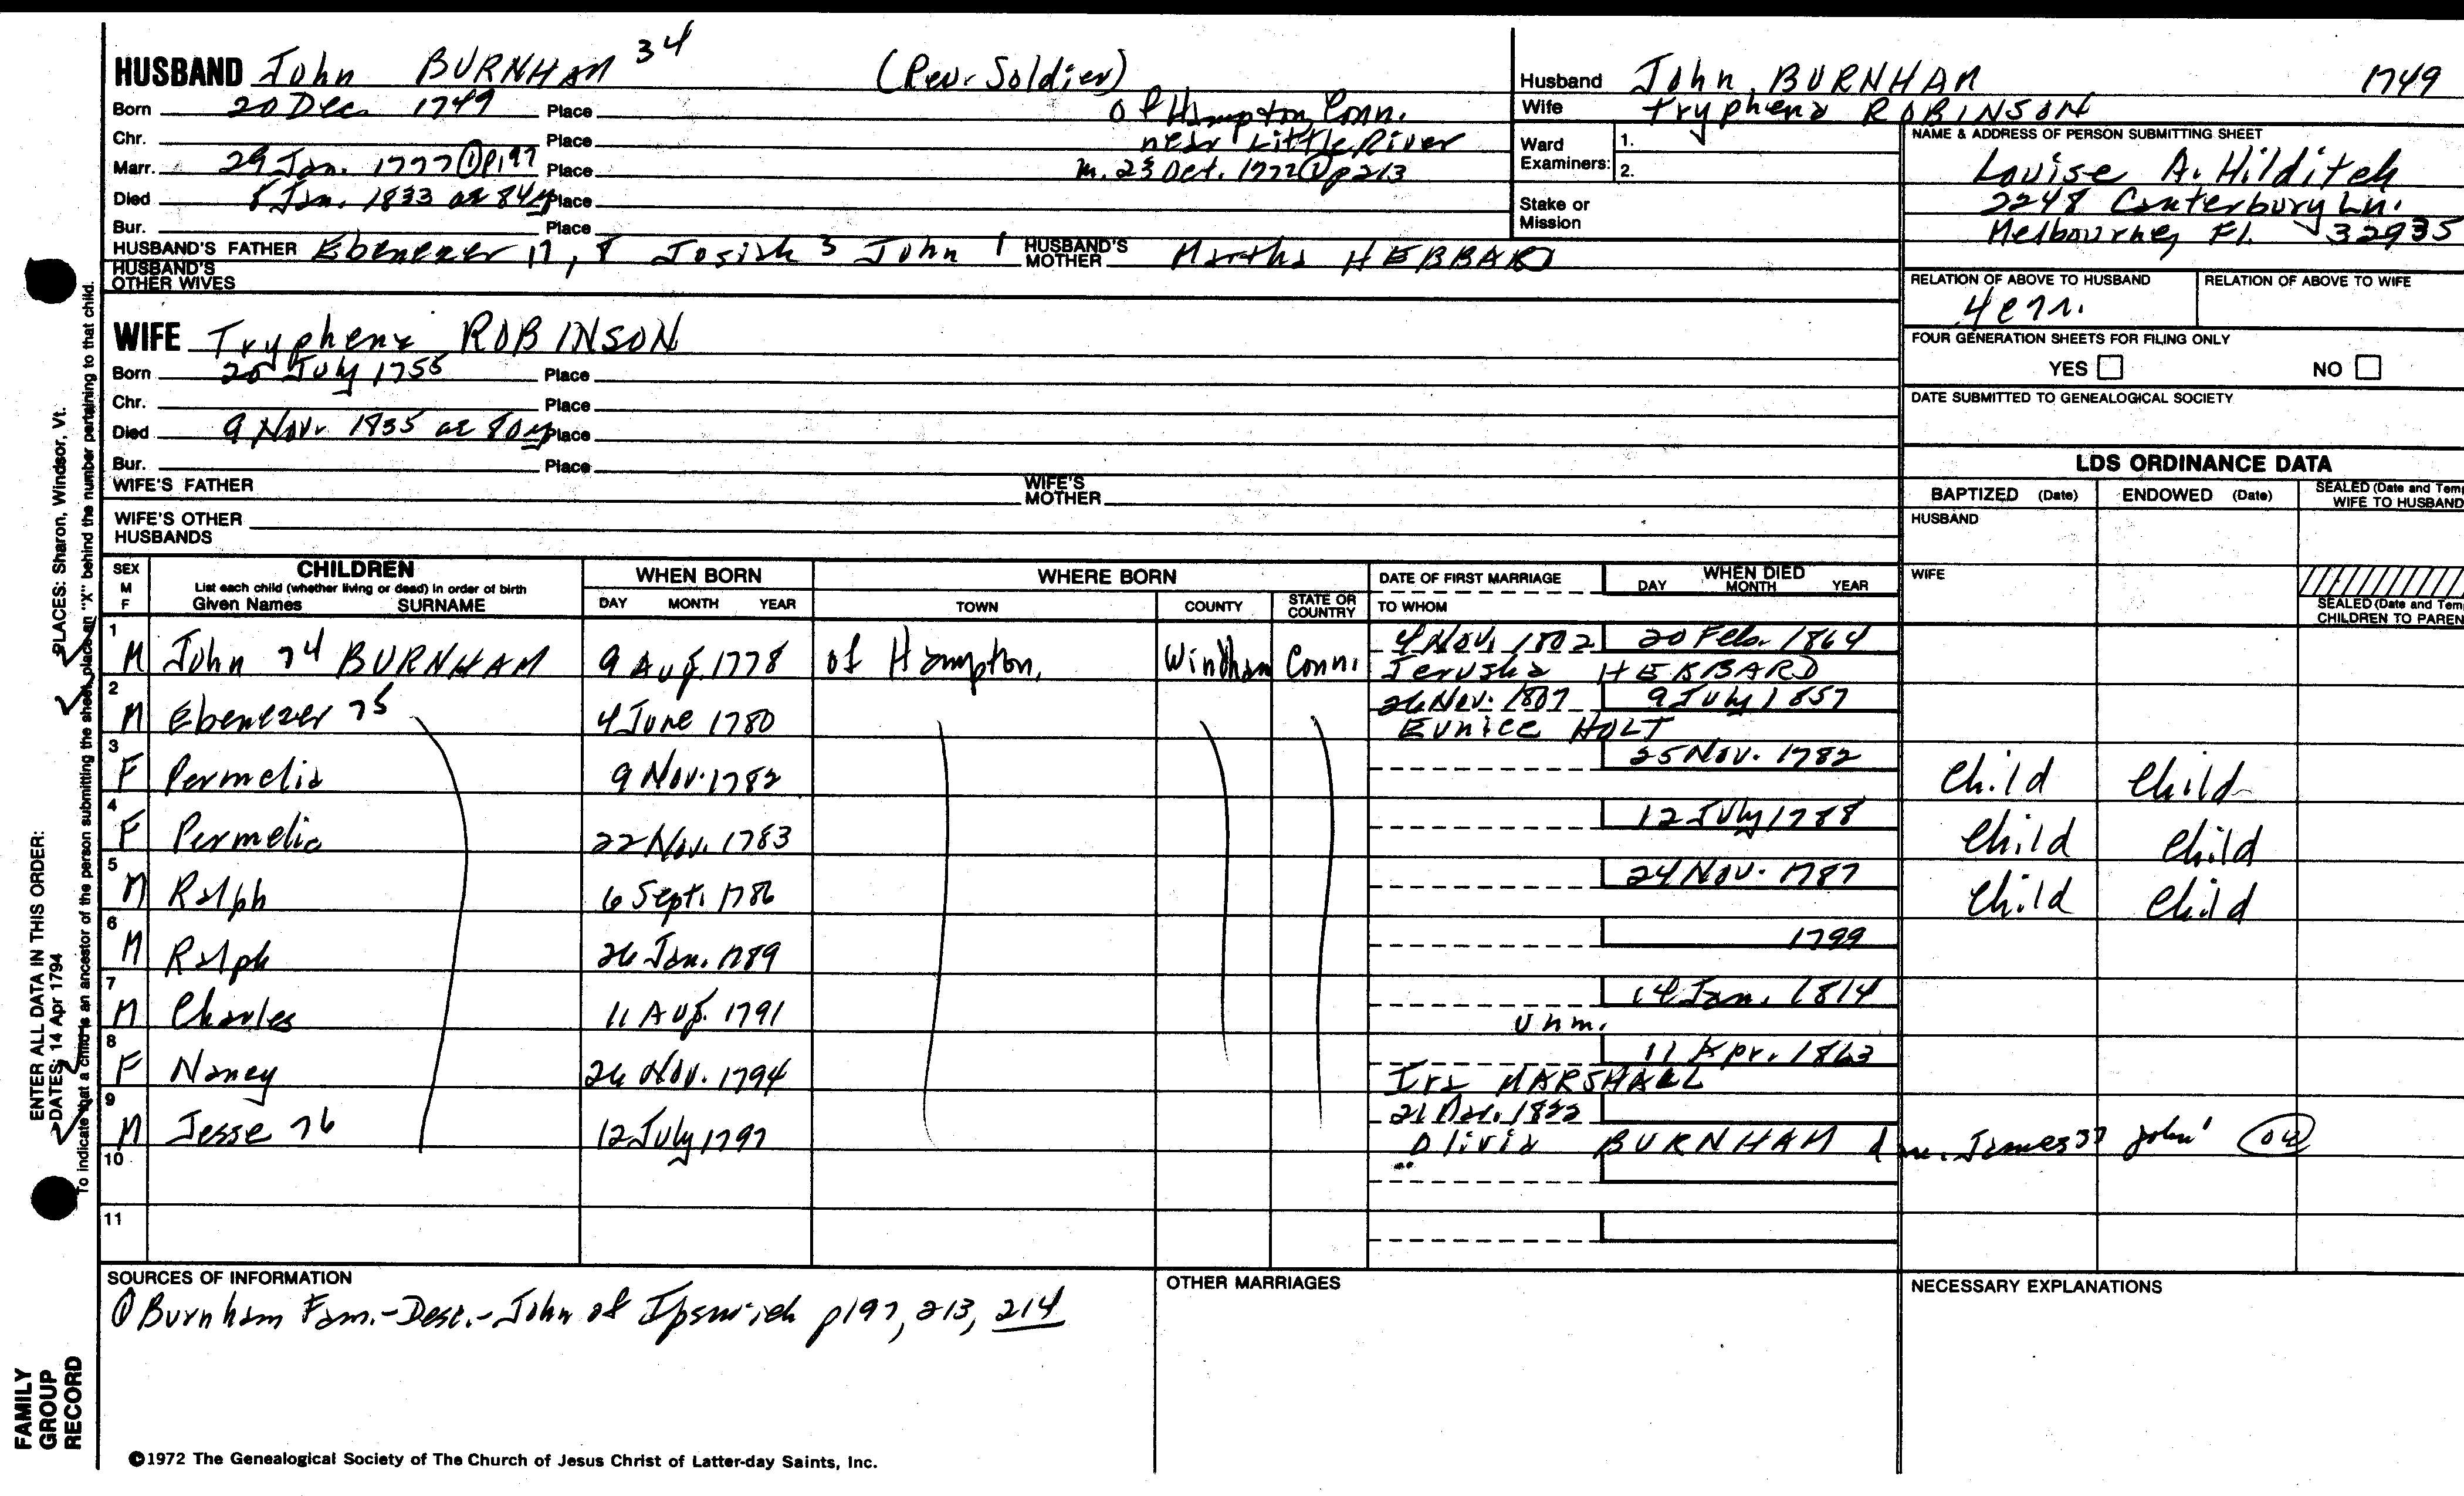 HUSBAND John BURNHAM 34 (Rev. Soldier)
Born 20 Dec. 1749 Place of Hampton, Conn.
Chr. Place near Little River
Marr. 29 Jan. 1777 ① p197 Place m. 23 Oct. 1772 ① p213
Died 8 Jan. 1833 ae 84y Place
Bur. Place
HUSBAND'S FATHER Ebenezer 17, 8 Josiah 3 John 1 HUSBAND'S MOTHER Martha HEBBARD
HUSBAND'S OTHER WIVES
WIFE Tryphena ROBINSON
Born 20 July 1755 Place
Chr. Place
Died 9 Nov. 1835 ae 80y Place
Bur. Place
WIFE'S FATHER WIFE'S MOTHER
WIFE'S OTHER HUSBANDS
Husband John BURNHAM 1749
Wife Tryphena ROBINSON
Ward Examiners: 1.
2.
Stake or Mission
NAME & ADDRESS OF PERSON SUBMITTING SHEET
Louise A. Hilditch
2248 Canterbury Ln.
Melbourne, Fl. 32935
RELATION OF ABOVE TO HUSBAND RELATION OF ABOVE TO WIFE
FOUR GENERATION SHEETS FOR FILING ONLY
YES NO
DATE SUBMITTED TO GENEALOGICAL SOCIETY
LDS ORDINANCE DATA
BAPTIZED (Date) ENDOWED (Date) SEALED (Date and Temp
WIFE TO HUSBAND
HUSBAND
WIFE
SEALED (Date and Tem
CHILDREN TO PAREN
SEX M F CHILDREN WHEN BORN WHERE BORN DATE OF FIRST MARRIAGE WHEN DIED
List each child (whether living or dead) in order of birth
Given Names SURNAME DAY MONTH YEAR TOWN COUNTY STATE OR COUNTRY TO WHOM DAY MONTH YEAR
1 M John 74 BURNHAM 9 Aug. 1778 of Hampton, Windham Conn. 4 Nov. 1802 20 Feb. 1864
Jerusha HEBBARD
2 M Ebenezer 75 4 June 1780 26 Nov. 1807 9 July 1857
Eunice HOLT
3 F Permelia 9 Nov. 1782 25 Nov. 1782 Child Child
4 F Permelia 22 Nov. 1783 12 July 1788 Child Child
5 M Ralph 6 Sept. 1786 24 Nov. 1787 Child Child
6 M Ralph 26 Jan. 1789 1799
7 M Charles 11 Aug. 1791 14 Jan. 1814
Unm.
8 F Nancy 26 Nov. 1794 11 Apr. 1863
Ira MARSHALL
9 M Jesse 76 12 July 1797 21 Mar. 1822
Olivia BURNHAM James 37 John 1
10
11
SOURCES OF INFORMATION
① Burnham Fam.-Desc.-John of Ipswich p197, 213, 214
OTHER MARRIAGES
NECESSARY EXPLANATIONS
©1972 The Genealogical Society of The Church of Jesus Christ of Latter-day Saints, Inc.
FAMILY
GROUP
RECORD
ENTER ALL DATA IN THIS ORDER:
DATES: 14 Apr 1794 PLACES: Sharon, Windsor, Vt.
To indicate that a child is an ancestor of the person submitting the sheet, place an "X" behind the number pertaining to that child.